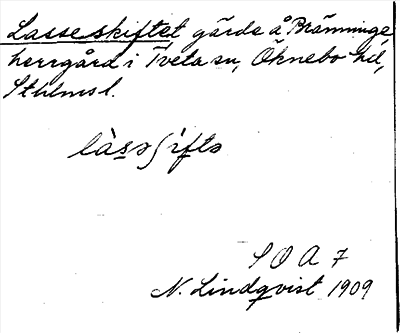 Lasseskiftet gärde å Bränninge
herrgård i Tveta sn, Öknebo hd,
Sthlmsl.
làsəʃiftə
S O A 7
N. Lindqvist 1909